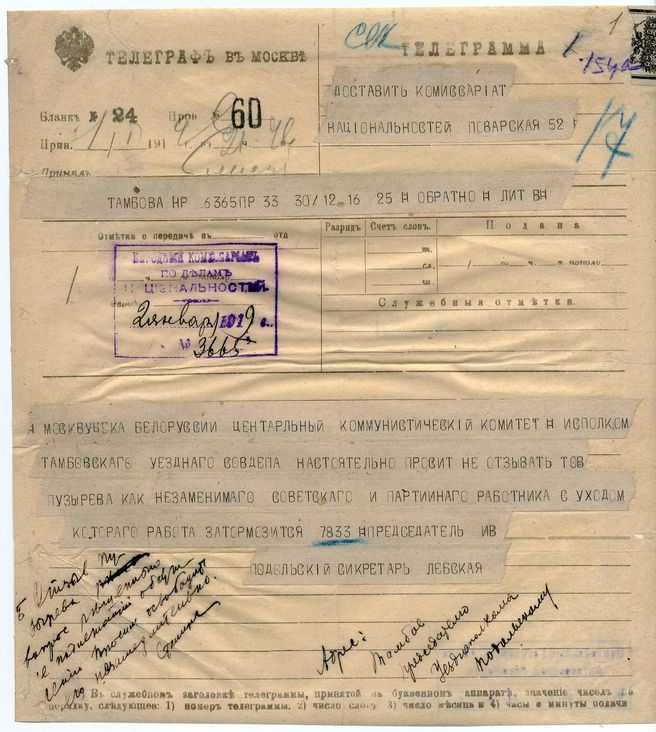 ТЕЛЕГРАФЪ ВЪ МОСКВѢ
ТЕЛЕГРАММА
1
154а
Бланкъ № 24
60
Прин.
191
ч.
Принялъ
ДОСТАВИТЬ КОМИССАРІАТ
НАЦІОНАЛЬНОСТЕЙ ПОВАРСКАЯ 52
17
ТАМБОВА НР 6365ПР 33 30/12 16 25 И ОБРАТНО И ЛИТ В
Отмѣтка о передачѣ въ отд
Разрядъ
Счетъ словъ.
Подана
сл.
/ по ч. м пополу
Служебныя отмѣтки.
ПО ДѢЛАМЪ
НАЦІОНАЛЬНОСТЕЙ.
2 январ 1919 г.
№ 3665
И МОСКВУЦЕКА БЕЛОРУССИИ ЦЕНТАРЛЬНЫЙ КОММУНИСТИЧЕСКІЙ КОМИТЕТ И ИСПОЛКОМ
ТАМБОВСКАГО УЕЗДНАГО СОВДЕПА НАСТОЯТЕЛЬНО ПРОСИТ НЕ ОТЗЫВАТЬ ТОВ
ПУЗЫРЕВА КАК НЕЗАМЕНИМАГО СОВЕТСКАГО И ПАРТИИНАГО РАБОТНИКА С УХОДОМ
КОТОРАГО РАБОТА ЗАТОРМОЗИТСЯ 7833 ИПРЕДСЕДАТЕЛЬ ИВ
ПОДОЛЬСКІЙ СИКРЕТАРЬ ЛЕБСКАЯ
Отзыв Пу-
зырева
вопрос решенный
и не подлежащий обсуж-
дению Просим освободить
его незамедлительно.
Сталин
Адрес:
Тамбов
Председателю
Уездисполкома
Подольскому
Въ служебномъ заголовкѣ телеграммы, принятой на буквенномъ аппаратѣ, значеніе чиселъ по
порядку, слѣдующее: 1) номеръ телеграммы, 2) число словъ 3) число мѣсяца и 4) часы и минуты подачи